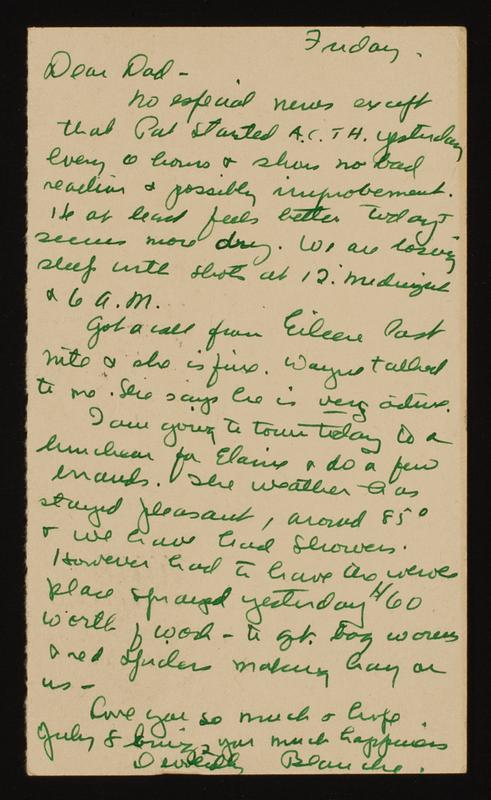 Friday.
Dear Dad -
No especial news except
that Pat started A.C.T.H. yesterday
every 6 hours & shows no bad
reaction & possibly improvement.
He at least feels better today &
seems more dry. We are losing
sleep with shots at 12. midnight
& 6 A.M.
Got a call from Eileen last
nite & she is fine. Wayne talked
to me. She says he is very active.
I am going to town today to a
luncheon for Elaine & do a few
errands. The weather has
stayed pleasant, around 85°
& we have had showers.
However had to have the whole
place sprayed yesterday $60
worth of work - to get bag worms
& red spiders making hay on
us -
Love you so much & hope
July 8 brings you much happiness
Devotedly Blanche.